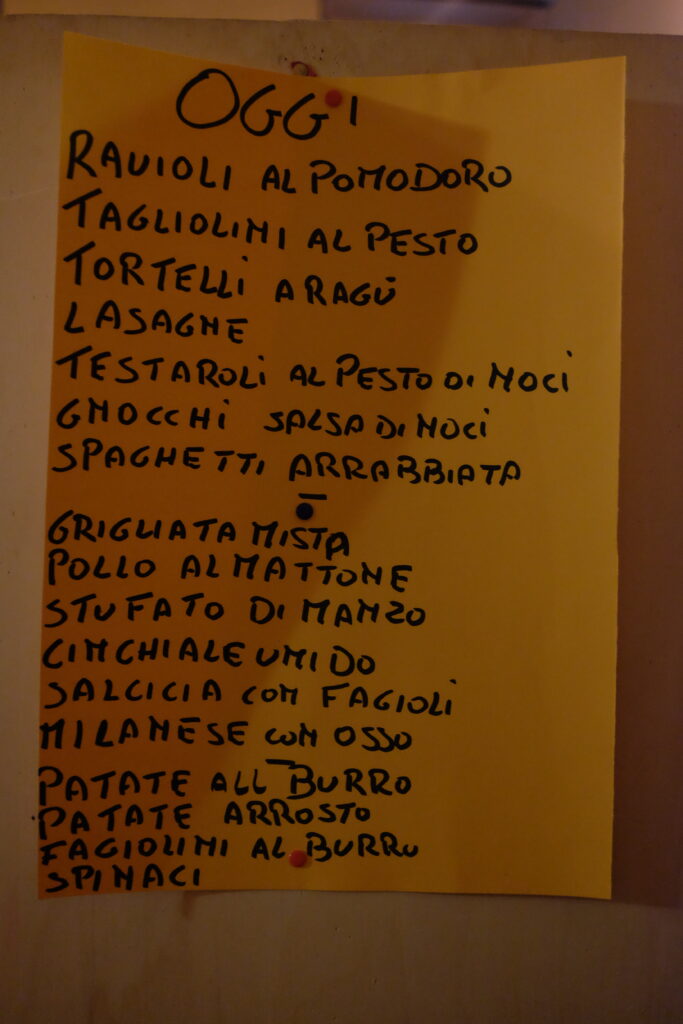 OGGI
RAVIOLI AL POMODORO
TAGLIOLINI AL PESTO
TORTELLI A RAGÙ
LASAGNE
TESTAROLI AL PESTO DI NOCI
GNOCCHI SALSA DI NOCI
SPAGHETTI ARRABBIATA
GRIGLIATA MISTA
POLLO AL MATTONE
STUFATO DI MANZO
CINCHIALE UMIDO
SALCICIA CON FAGIOLI
MILANESE CON OSSO
PATATE ALL BURRO
PATATE ARROSTO
FAGIOLINI AL BURRO
SPINACI